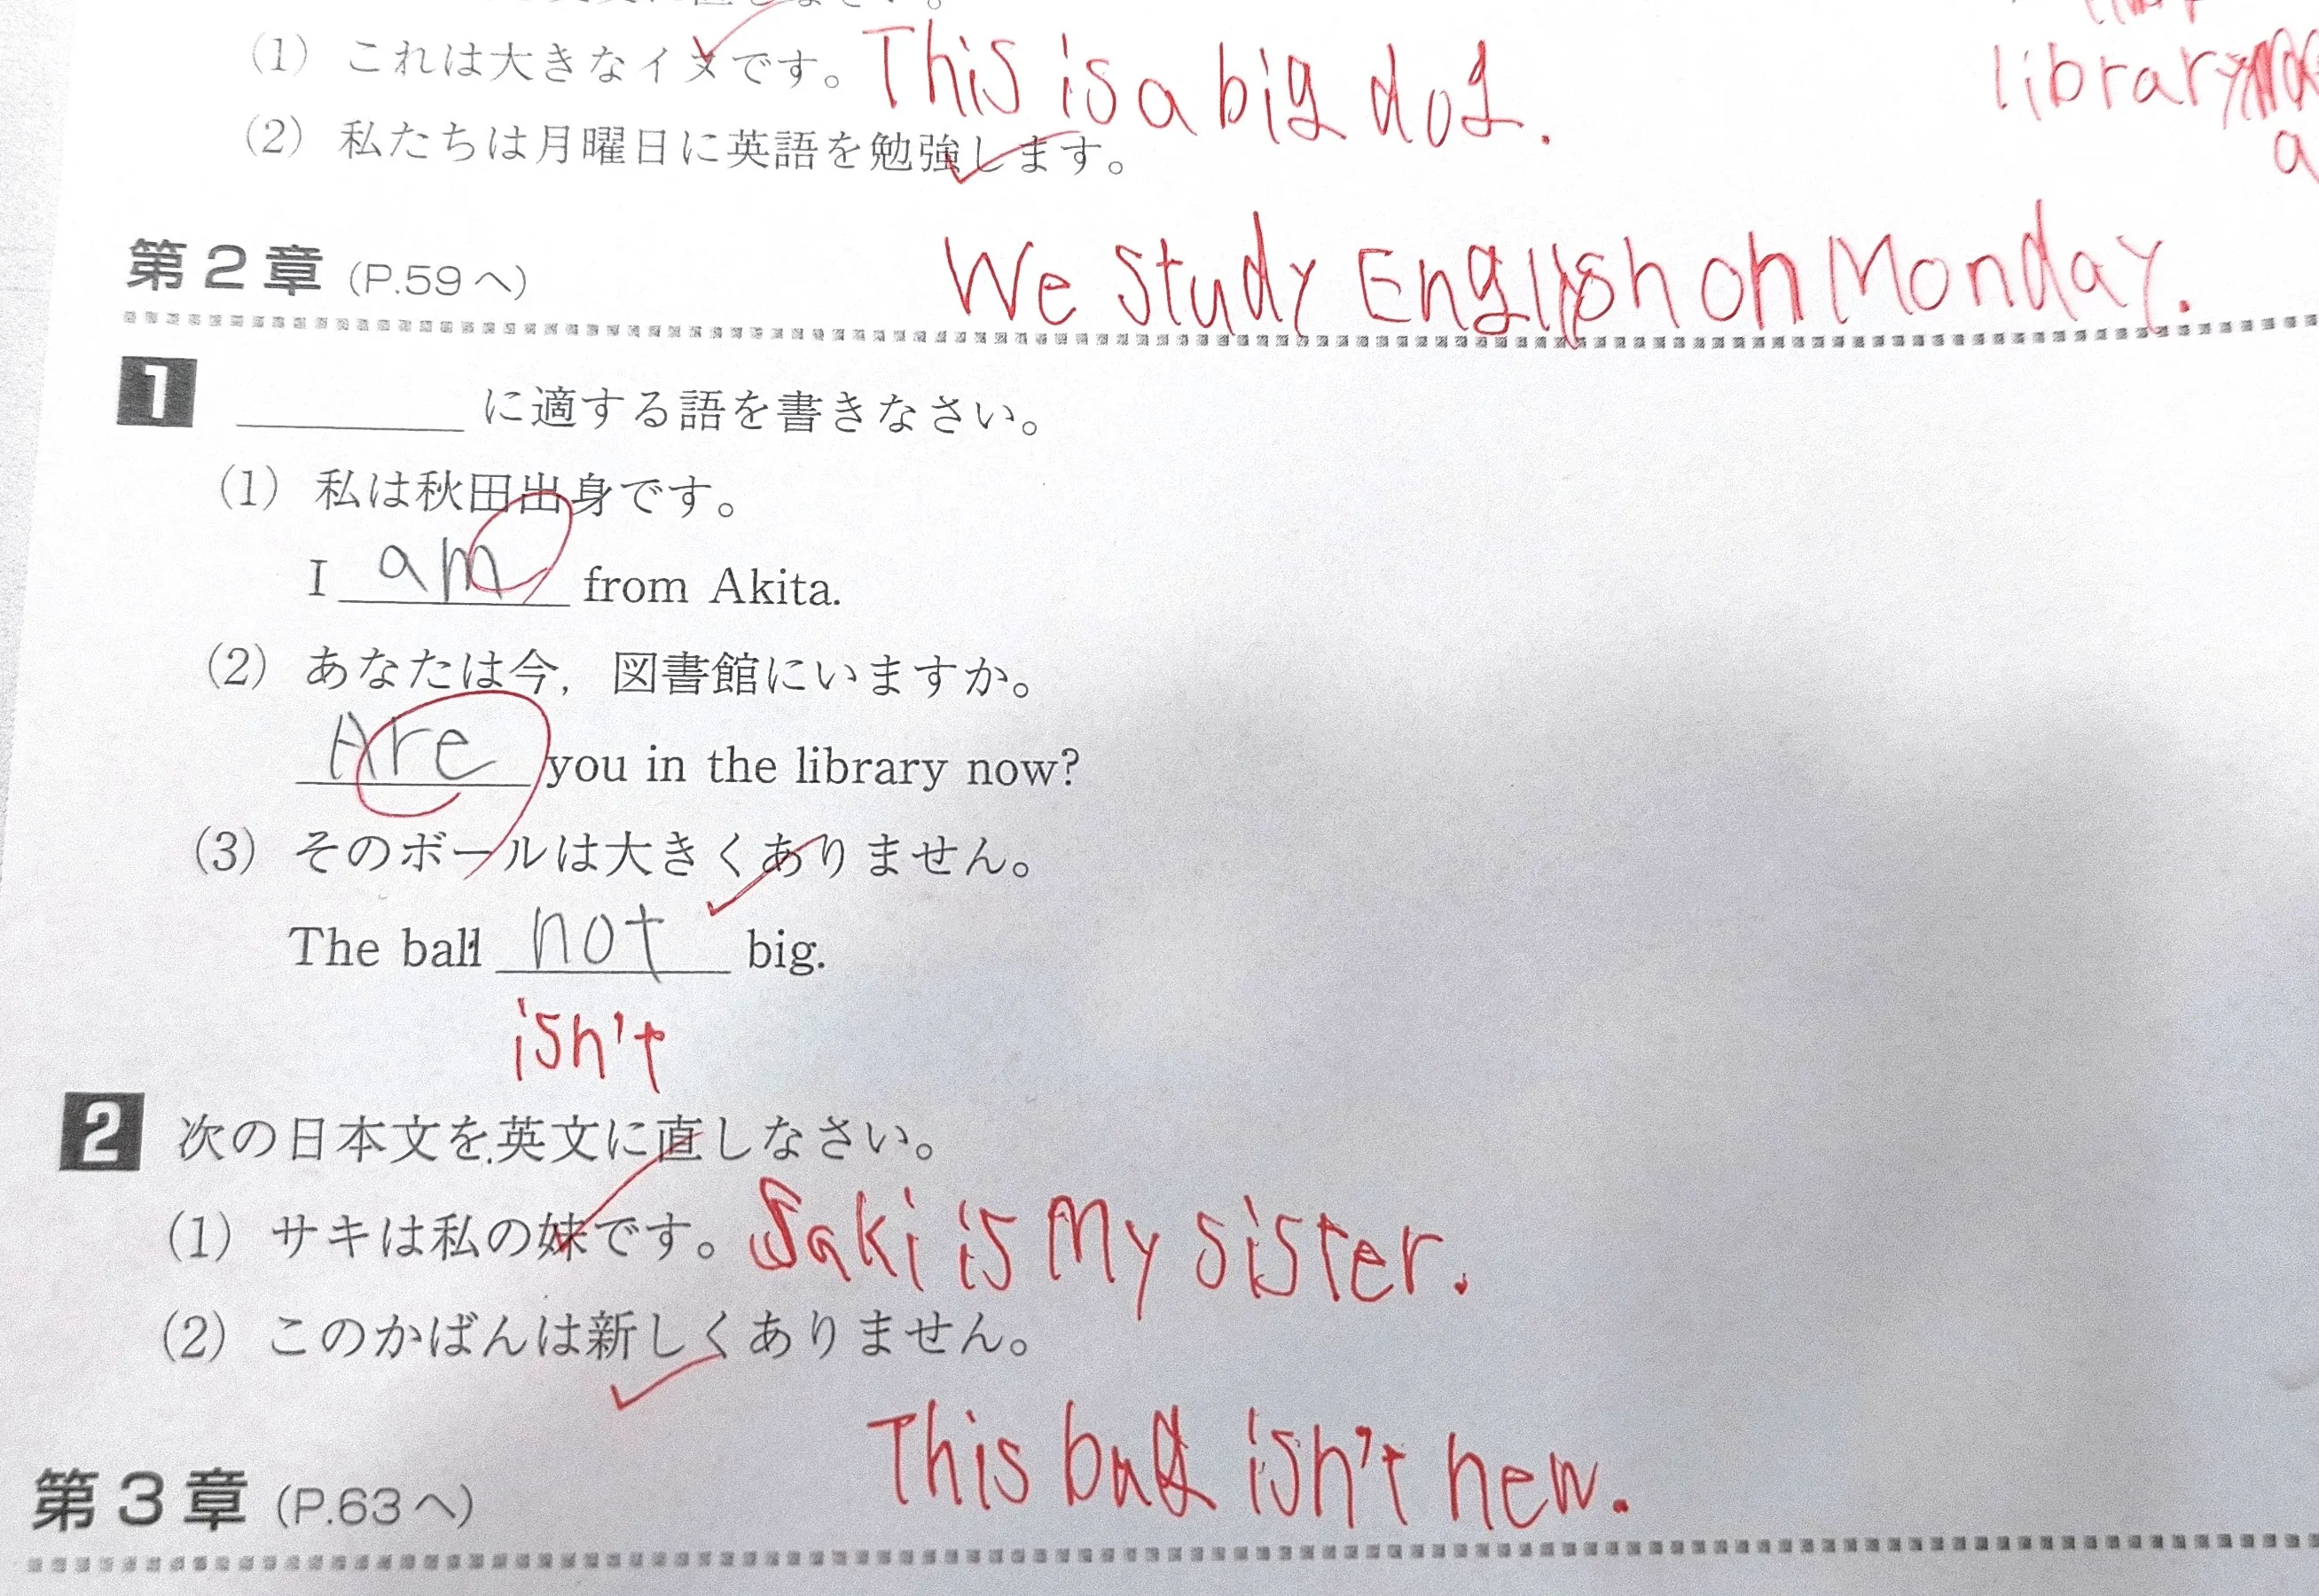 (1) これは大きなイヌです。 This is a big dog.
library
a
(2) 私たちは月曜日に英語を勉強します。
We study English on Monday.
第2章 (P.59へ)
1 ______ に適する語を書きなさい。
(1) 私は秋田出身です。
I am from Akita.
(2) あなたは今，図書館にいますか。
Are you in the library now?
(3) そのボールは大きくありません。
The ball not big.
isn't
2 次の日本文を英文に直しなさい。
(1) サキは私の妹です。 Saki is My sister.
(2) このかばんは新しくありません。
This bag isn't new.
第3章 (P.63へ)